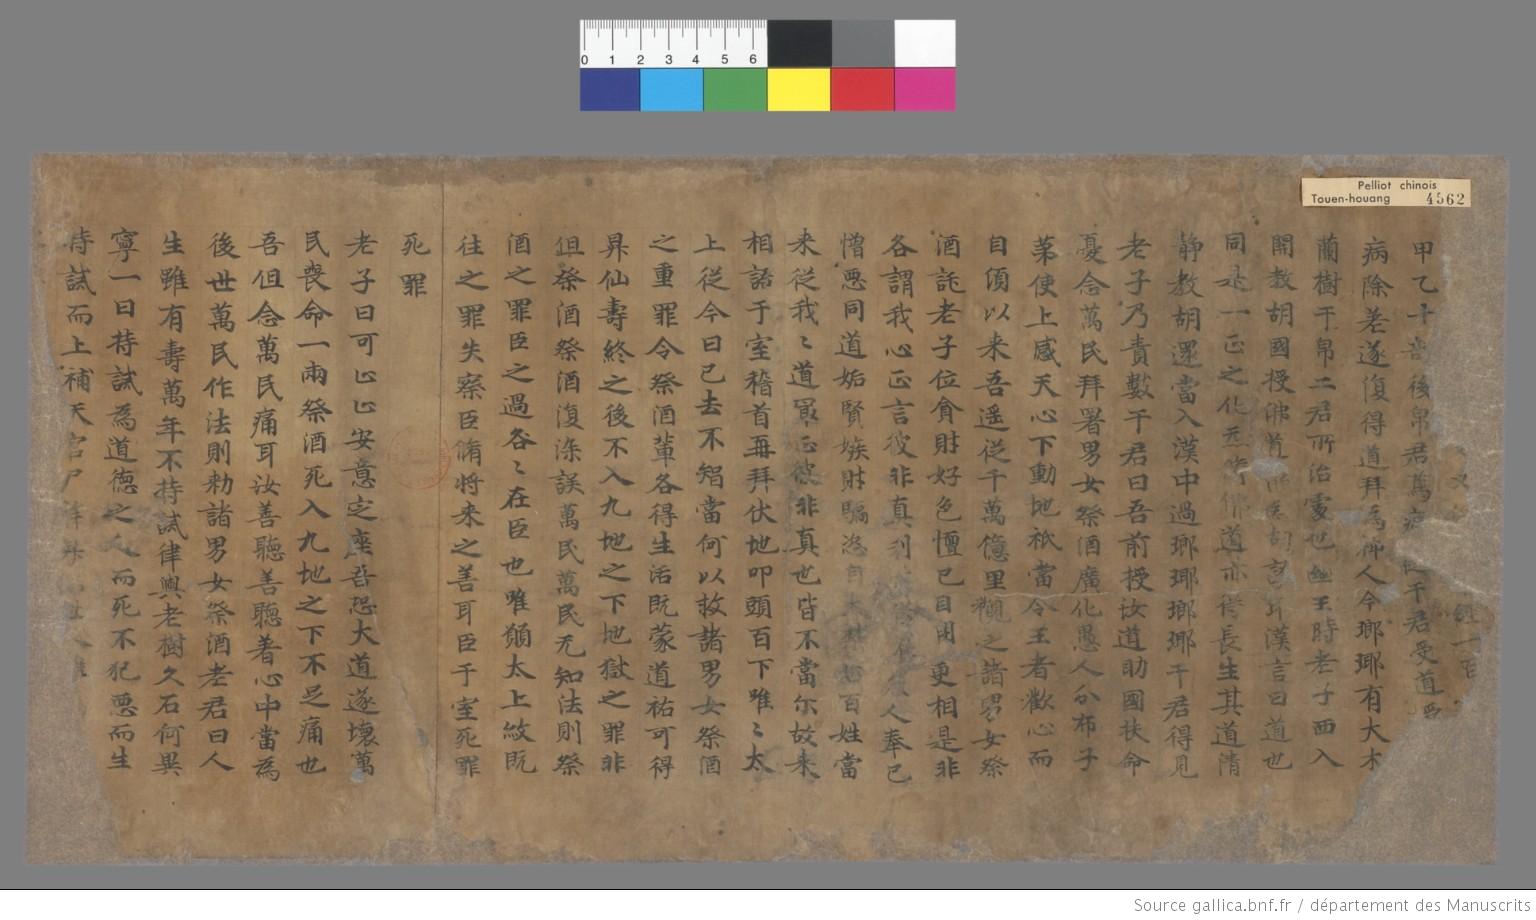 Pelliot chinois
Touen-houang 4562
0 1 2 3 4 5 6
經一百
甲乙十首後帛君篤病 千君受道
病除差遂復得道拜為神人今瑯瑘有大木
蘭樹干帛二君所治處也幽王時老子西入
關教胡國授佛道 胡 耳漢言曰道也
同是一正之化 道亦得長生其道清
静教胡還當入漢中過瑯瑘瑯瑘干君得見
老子乃責數干君曰吾前授汝道助國扶命
憂念萬民拜署男女祭酒廣化愚人分布子
苐使上感天心下動地祇當令王者歡心而
自頃以来吾遥從千萬億里觀之諸男女祭
酒託老子位貪財好色擅己自用更相是非
各謂我心正言彼非真利 人奉已
憎惡同道妬賢嫉財驕恣自大 百姓當
来從我〻道冣正彼非真世皆不當尔故来
相語于室稽首再拜伏地叩頭百下唯〻太
上從今日已去不知當何以救諸男女祭酒
之重罪令祭酒輩各得生活既蒙道祐可得
昇仙壽終之後不入九地之下地獄之罪非
但祭酒祭酒復深誤萬民萬民无知法則祭
酒之罪臣之過各〻在臣也唯願太上紋既
往之罪失察臣脩将来之善耳臣于室死罪
死罪
老子曰可止止安意定座吾恐大道遂壞萬
民喪命一兩祭酒死入九地之下不足痛也
吾但念萬民痛耳汝善聴善聴著心中當為
後世萬民作法則勑諸男女祭酒老君曰人
生雖有壽萬年不持誡律與老樹久石何異
寧一日持誡為道德之人而死不犯惡而生
持誡而上補天官尸
Source gallica.bnf.fr / département des Manuscrits